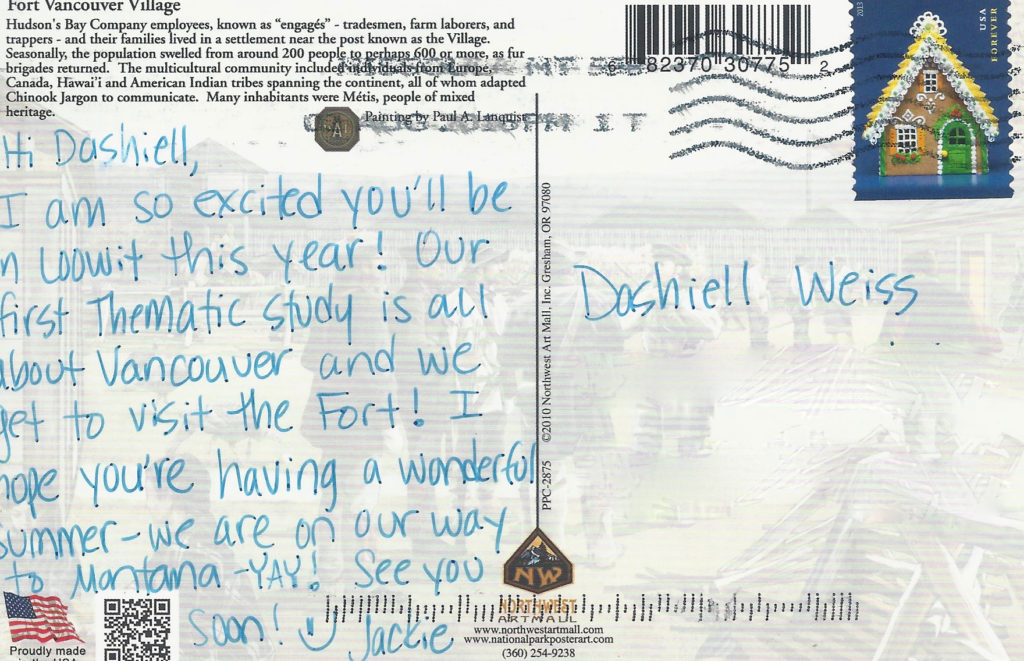 Fort Vancouver Village
Hudson's Bay Company employees, known as “engagés” - tradesmen, farm laborers, and
trappers - and their families lived in a settlement near the post known as the Village.
Seasonally, the population swelled from around 200 people to perhaps 600 or more, as fur
brigades returned.  The multicultural community included individuals from Europe,
Canada, Hawai'i and American Indian tribes spanning the continent, all of whom adapted
Chinook Jargon to communicate.  Many inhabitants were Métis, people of mixed
heritage.
Painting by Paul A. Lanquist
Hi Dashiell,
I am so excited you'll be
n Loowit this year! Our
first Thematic study is all
about Vancouver and we
get to visit the Fort! I
hope you're having a wonderful
summer - we are on our way
to Montana - YAY! See you
soon! Jackie
6 82370 30775 2
2013
USA
FOREVER
Dashiell Weiss
PPC-2875 ©2010 Northwest Art Mall, Inc. Gresham, OR 97080
NW
NORTHWEST
ARTMALL
www.northwestartmall.com
www.nationalparkposterart.com
(360) 254-9238
Proudly made
in the USA